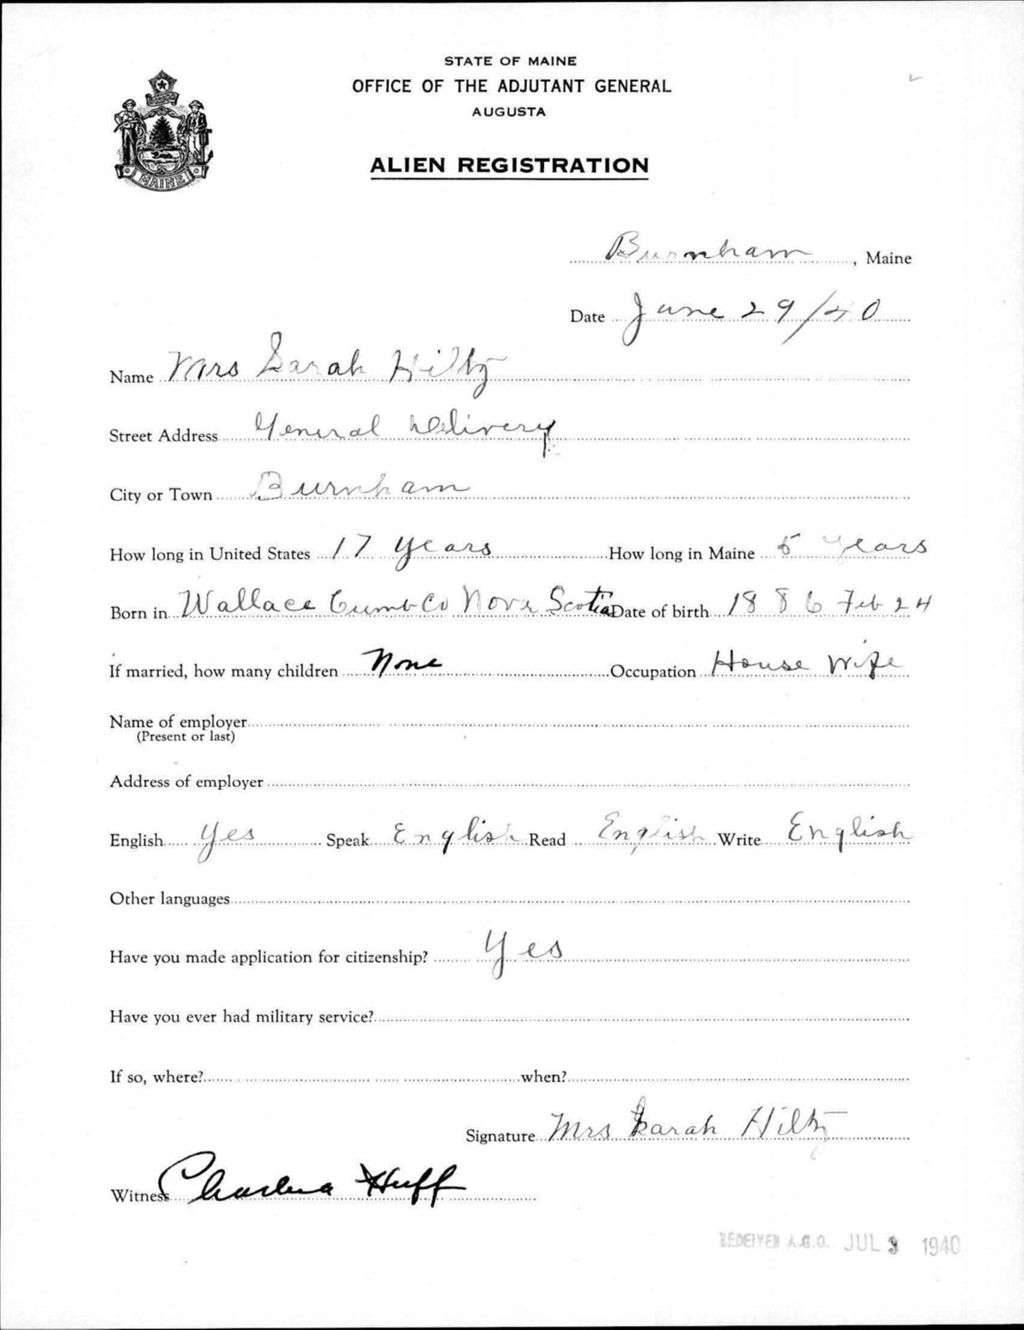 STATE OF MAINE
OFFICE OF THE ADJUTANT GENERAL
AUGUSTA
ALIEN REGISTRATION
MAINE
Burnham, Maine
Date June 29/40
Name Mrs Sarah Hiltz
Street Address General Delivery
City or Town Burnham
How long in United States 17 years How long in Maine 5 years
Born in Wallace Cumb Co Nova Scotia Date of birth 1886 Feb 24
If married, how many children None Occupation House wife
Name of employer
(Present or last)
Address of employer
English Yes Speak English Read English Write English
Other languages
Have you made application for citizenship? Yes
Have you ever had military service?
If so, where? when?
Signature Mrs Sarah Hiltz
Witness Huff
RECEIVED A.G.O. JUL 3 1940